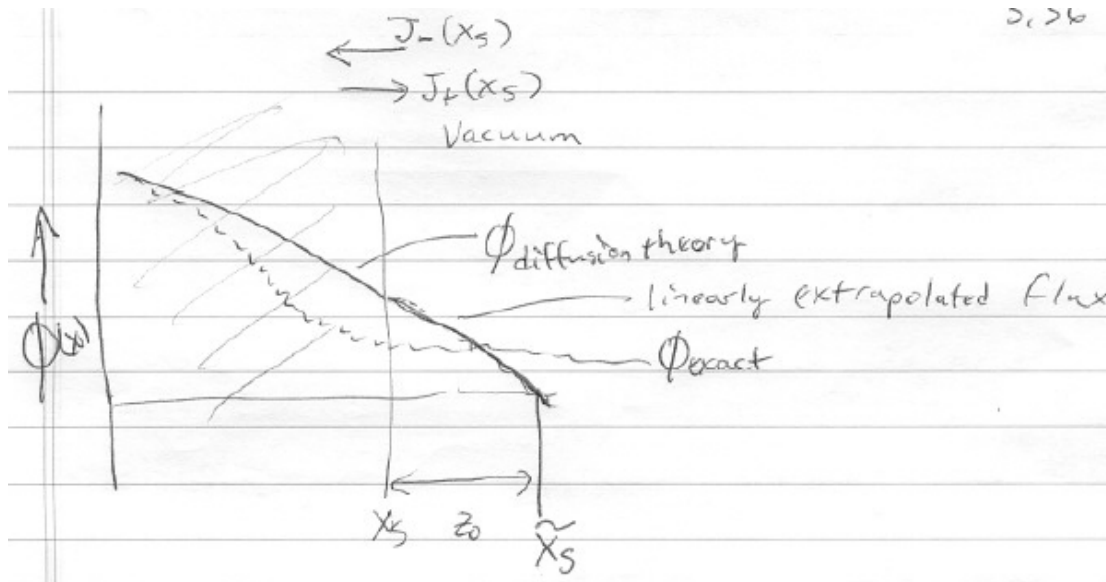 3.36
J-(xs)
J+(xs)
Vacuum
ϕdiffusion theory
linearly extrapolated flux
ϕ(x)
ϕexact
xs z0 x̃s